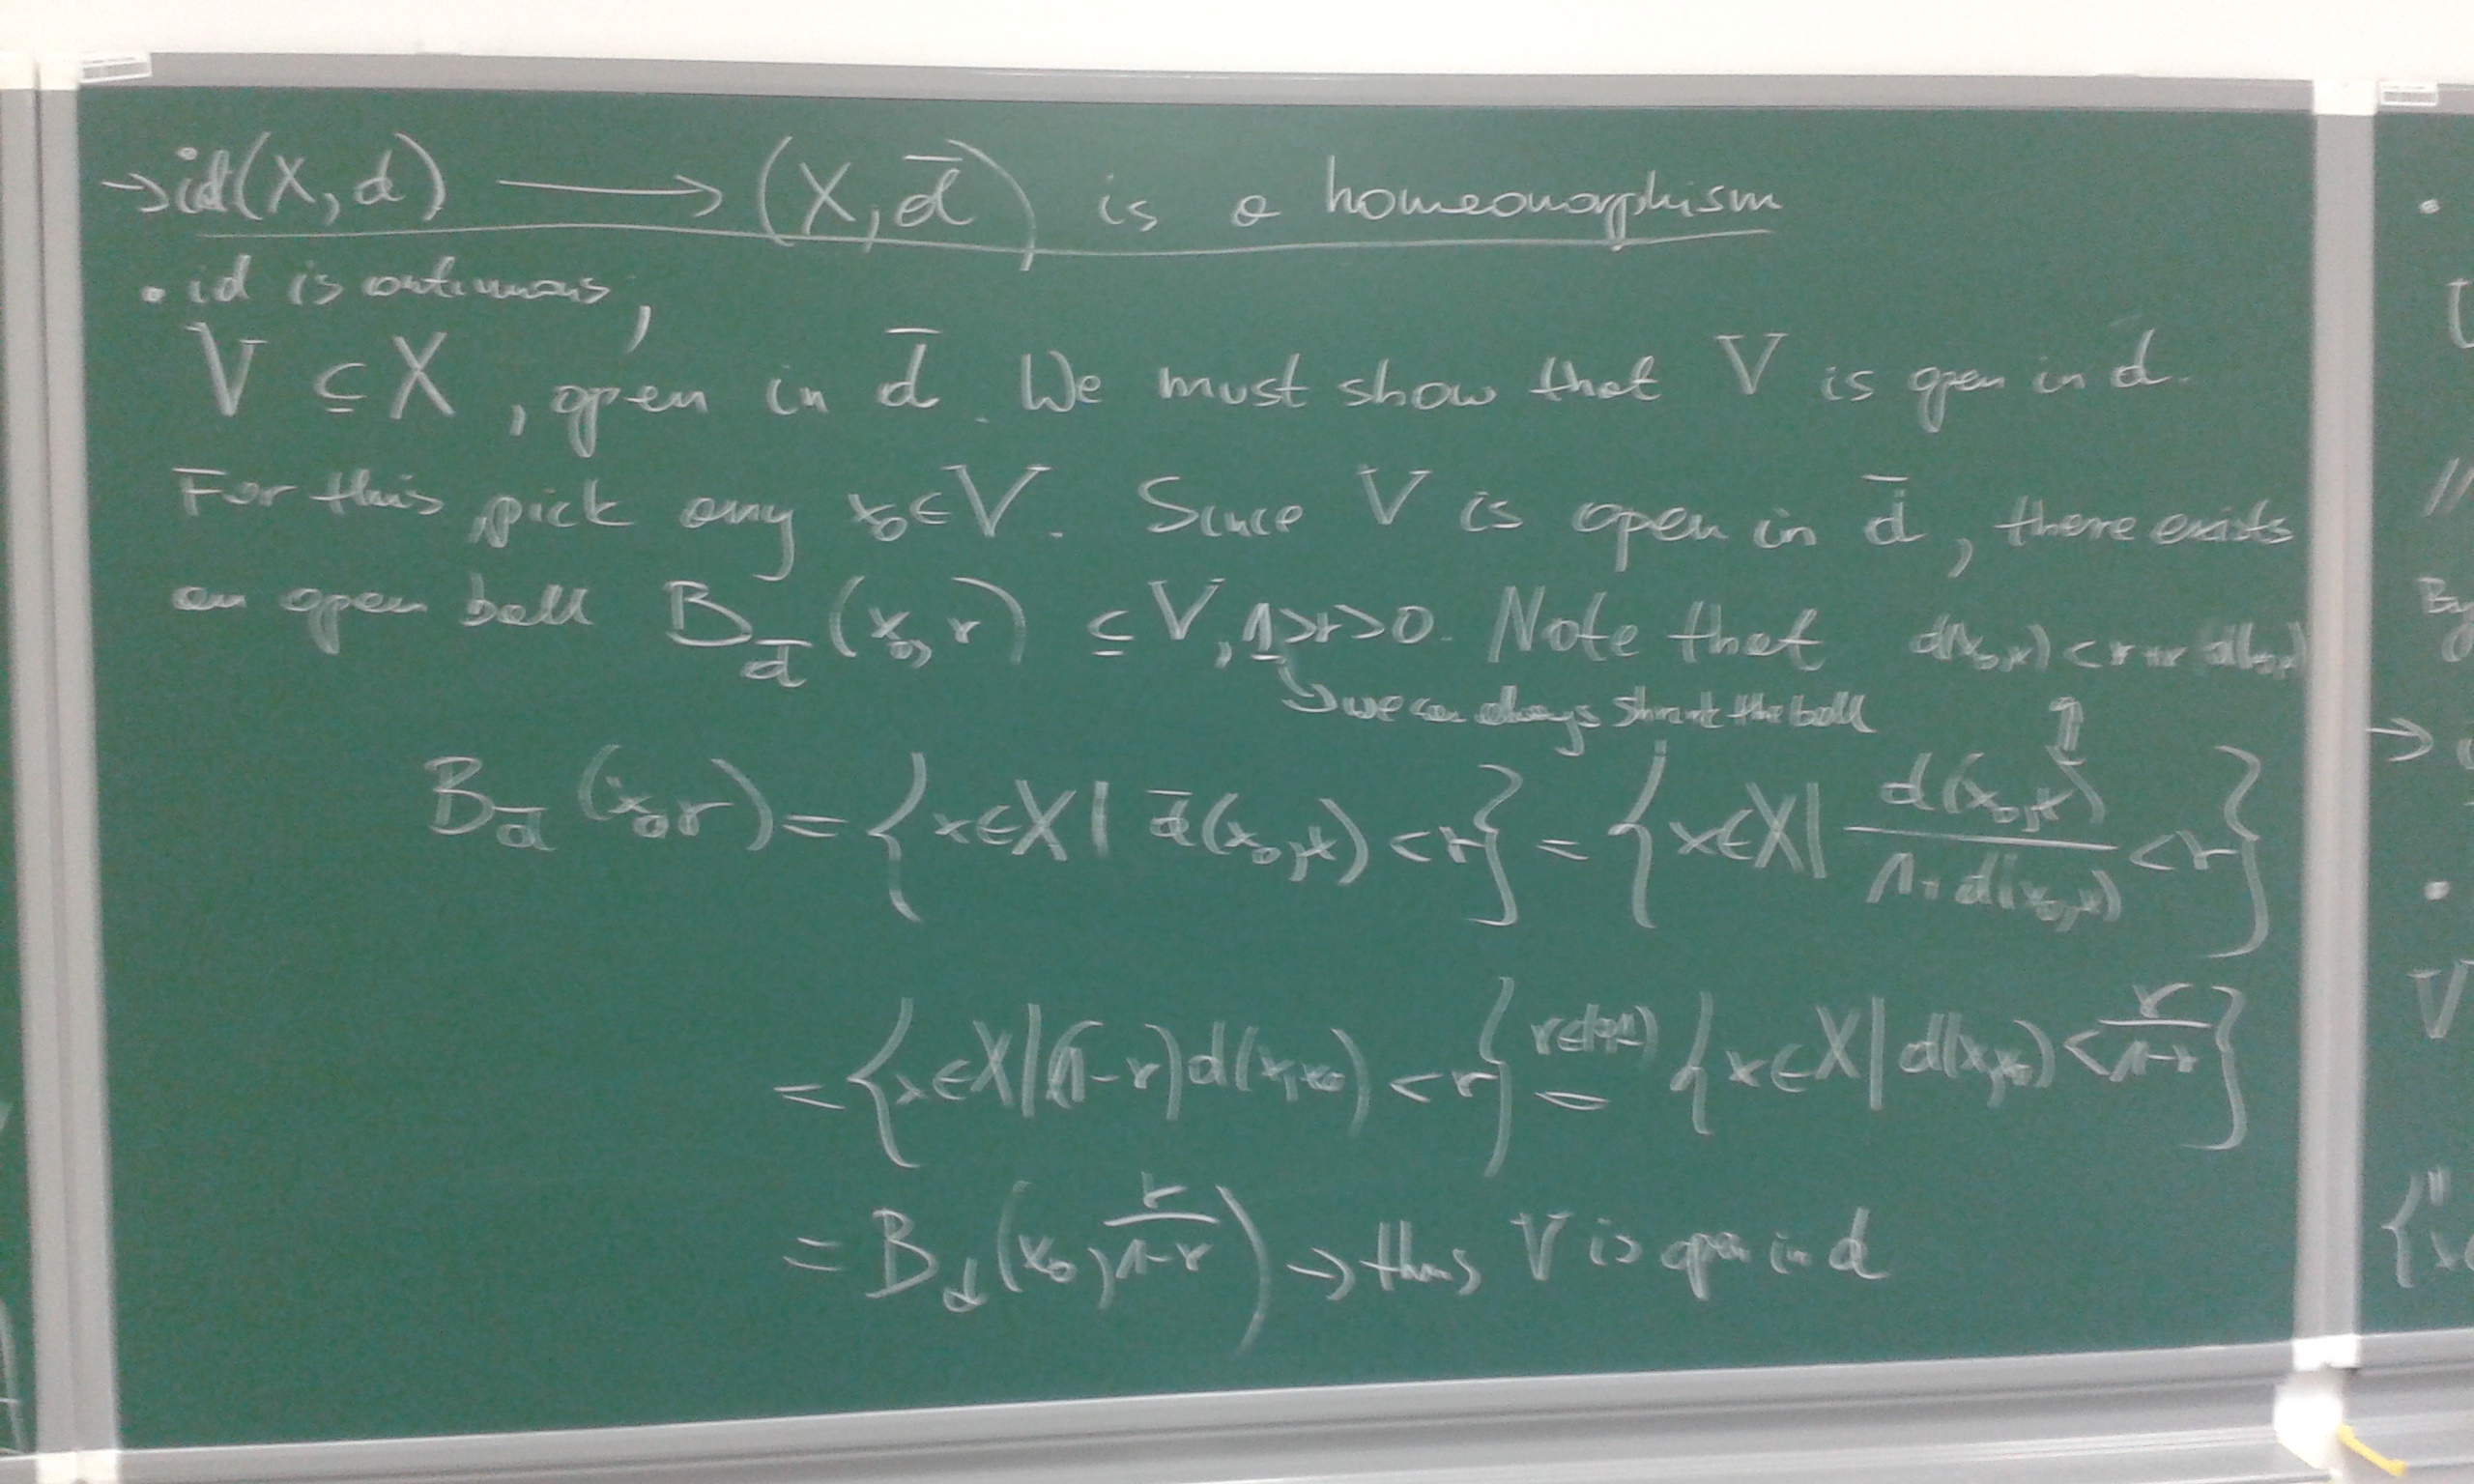 →id(X,d) ⟶ (X,d̅) is a homeomorphism
• id is continuous,
V ⊆ X, open in d̅. We must show that V is open in d.
For this, pick any x₀∈V. Since V is open in d̅, there exists
an open ball B_d̅(x₀,r) ⊆ V, 1>r>0. Note that d(x₀,x) < r+r d(x₀,x)
↳ we can always shrink the ball ⇑
B_d̅(x₀,r) = {x∈X | d̅(x₀,x) < r} = {x∈X | d(x₀,x)/(1+d(x₀,x)) < r}
= {x∈X | (1-r)d(x,x₀) < r} =^{r∈(0,1)} {x∈X | d(x,x₀) < r/(1-r)}
= B_d(x₀, r/(1-r)) → thus V is open in d
By